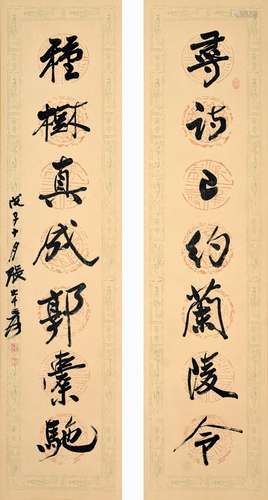 尋詩已約蘭陵令
種樹真成郭橐駝
戊子十月張大千爰